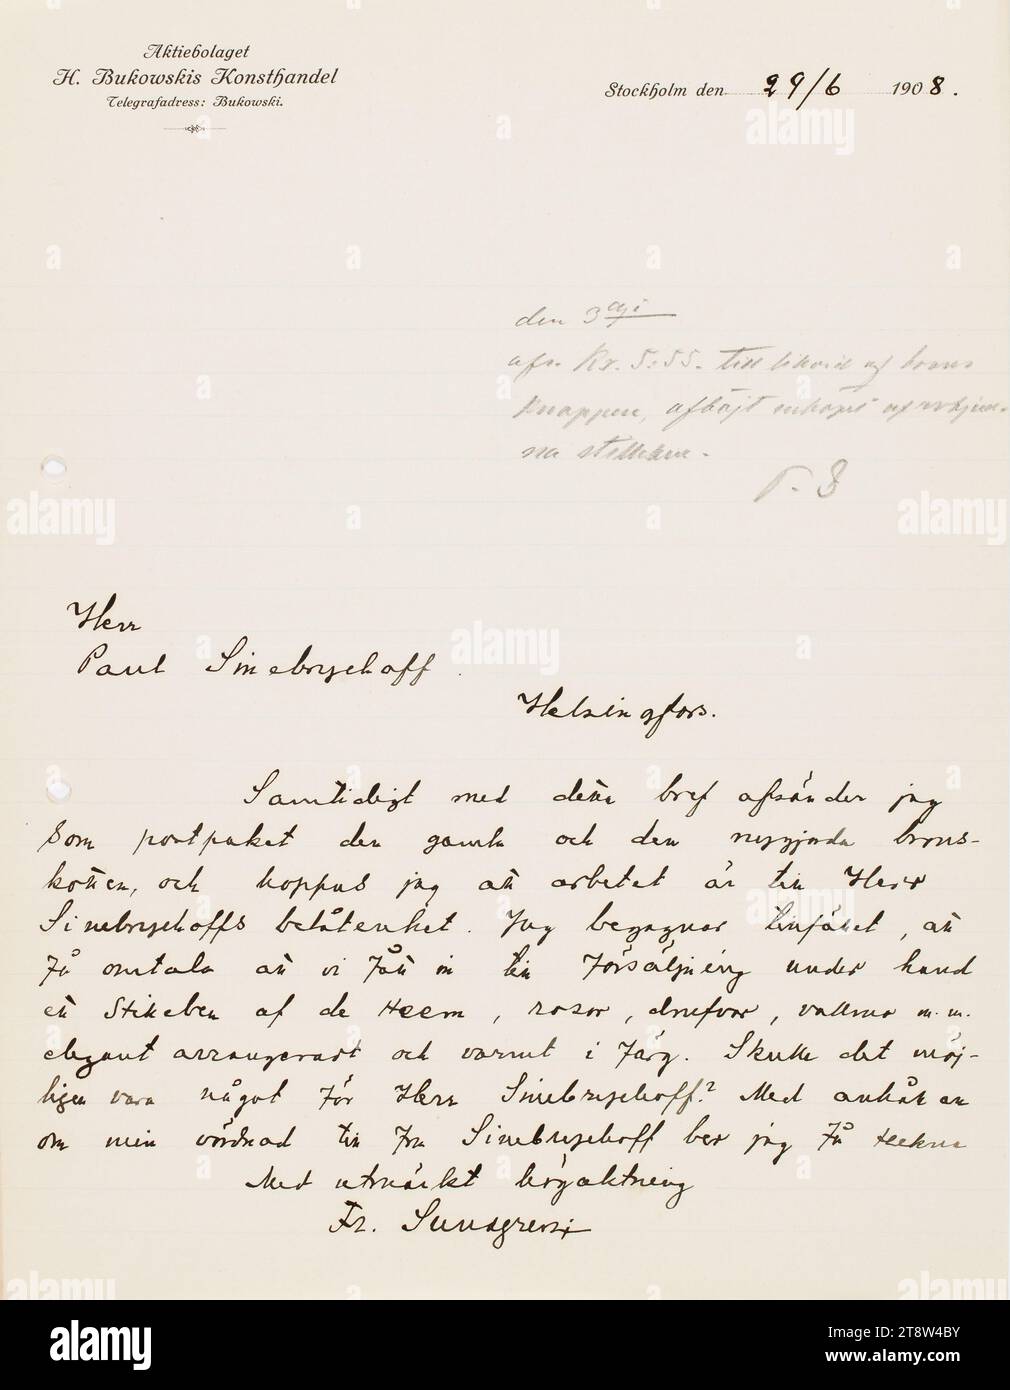 Aktiebolaget
H. Bukowskis Konsthandel
Telegrafadress: Bukowski.
Stockholm den 29/6 1908.
den 3 
Kr. 5:55. till likvid af brons
knappen, 
P. S
Herr
Paul Sinebrychoff
Helsingfors.
Samtidigt med detta bref afsänder jag
som postpaket den gamla och den nygjorda brons-
kotten, och hoppas jag att arbetet är till Herr
Sinebrychoffs belåtenhet. Jag begagnar tillfället, att
få omtala att vi fått in till försäljning under hand
ett Stilleben af de Heem, rosor, drufvor, vallmo m.m.
elegant arrangeradt och varmt i färg. Skulle det möj-
ligen vara något för Herr Sinebrychoff? Med anhållan
om min vördnad till Fru Sinebrychoff ber jag få teckna
Med utmärkt högaktning
Fr. Sundgren
alamy
Image ID: 2T8W4BY
www.alamy.com